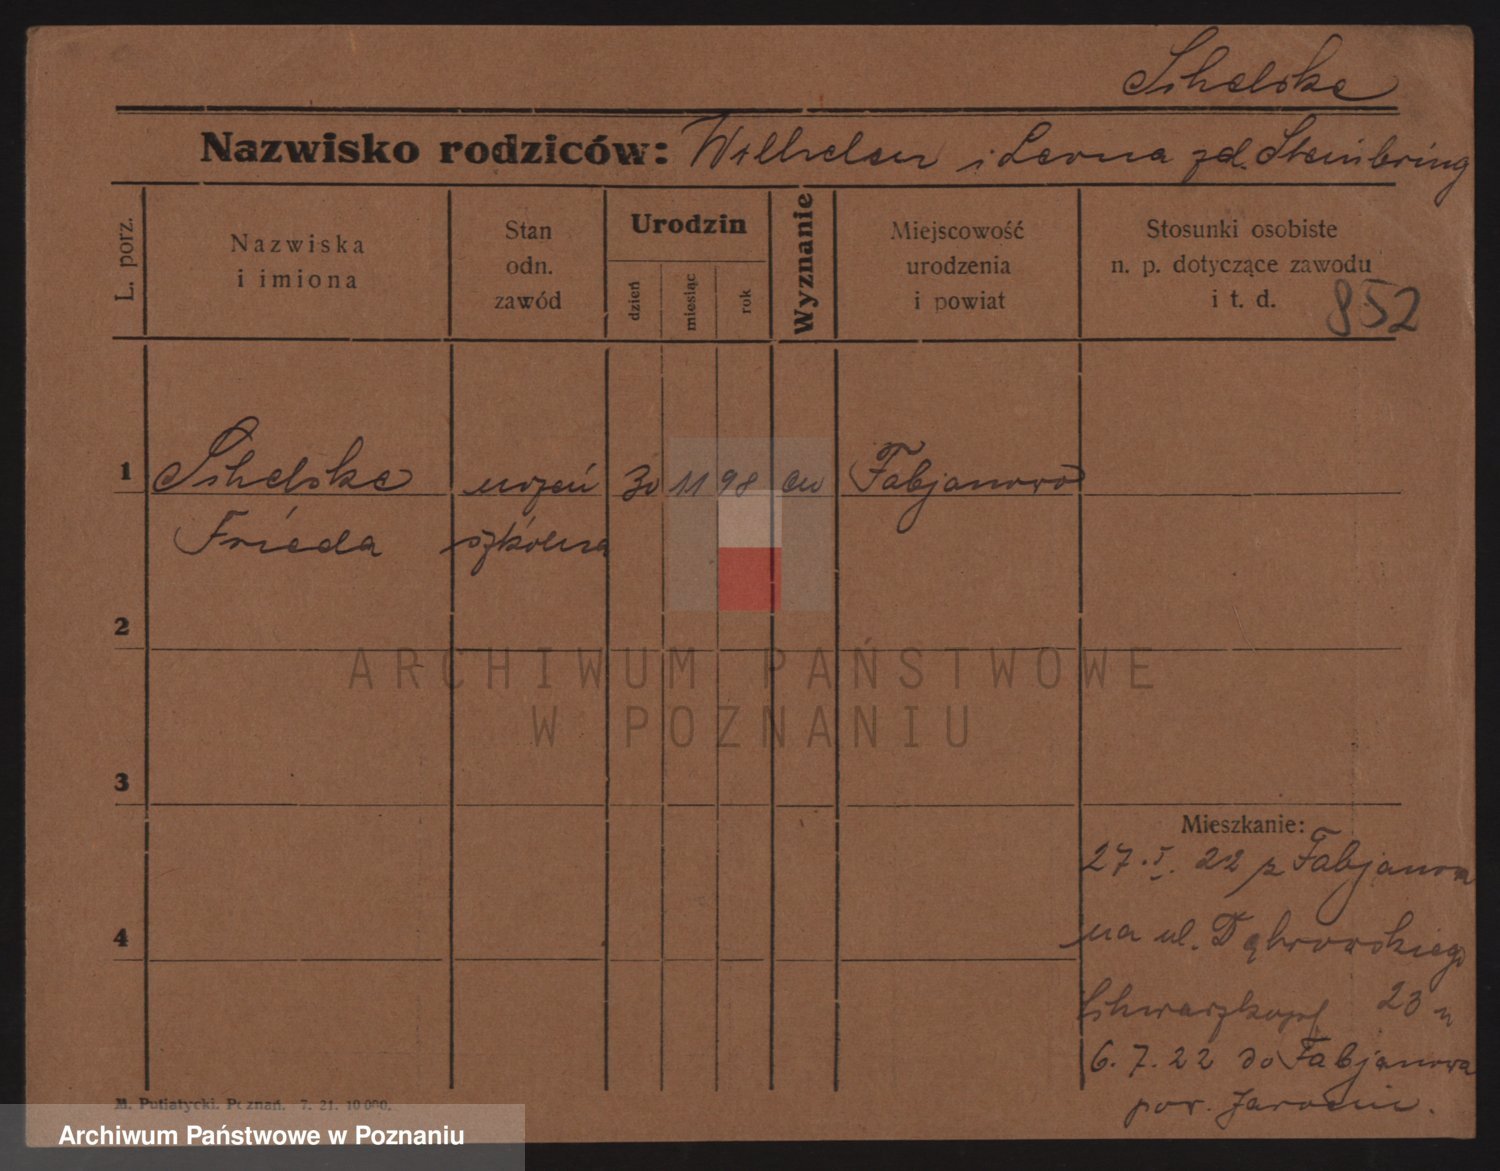 Schelske
Nazwisko rodziców: Wilhelm i Leona zd. Steinbring
L. porz.
Nazwiska
i imiona
Stan
odn.
zawód
Urodzin
dzień
miesiąc
rok
Wyznanie
Miejscowość
urodzenia
i powiat
Stosunki osobiste
n. p. dotyczące zawodu
i t. d.
852
1 Schelske 30 11 98 ew Fabjanowo
Frieda szkólna
2
3
4
Mieszkanie:
27.I.22 z Fabjanowa
na ul. Dąbrowskiego
23 u
6.7.22 do Fabjanowa
pow. Jarocin.
M. Putiatycki. Poznań. 7. 21. 10 000.
ARCHIWUM PAŃSTWOWE
W POZNANIU
Archiwum Państwowe w Poznaniu